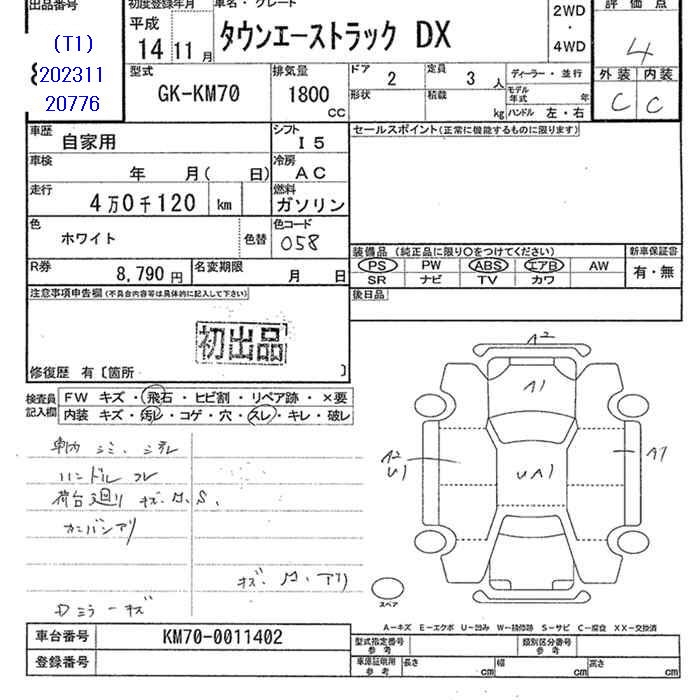 出品番号
(T1)
202311
20776
初度登録年月
平成
14 11 月
車名・グレード
タウンエーストラック DX
2WD
・
4WD
評価点
4
外装 内装
C C
型式
GK-KM70
排気量
1800
CC
ドア 2
定員 3 人
形状
積載 kg
ディーラー・並行
モデル年式 年
ハンドル 左・右
車歴
自家用
シフト
I 5
車検
年 月( 日)
冷房
AC
走行
4万0千120 km
燃料
ガソリン
色
ホワイト
色替
色コード
058
R券
8,790 円
名変期限
月 日
セールスポイント(正常に機能するものに限ります)
装備品 (純正品に限り〇をつけてください)
PS PW ABS エアB AW
SR ナビ TV カワ
新車保証書
有・無
後日品
注意事項申告欄 (不具合内容等は具体的に記入して下さい)
初出品
修復歴 有〔箇所 〕
検査員記入欄
FW キズ・飛石・ヒビ割・リペア跡・×要
内装 キズ・汚レ・コゲ・穴・スレ・キレ・破レ
車内 シミ、
ハンドル スレ
荷台廻り キズ・H、S、
カンバンアリ
キズ・H・アリ
Dミラーキズ
A2
A1
A2
U1
UA1
A1
スペア
A-キズ E-エクボ U-凹み W-補修跡 S-サビ C-腐食 XX-交換済
車台番号
KM70-0011402
登録番号
型式指定番号 参考
類別区分番号 参考
車庫証明用 参考
長さ cm
幅 cm
高さ cm